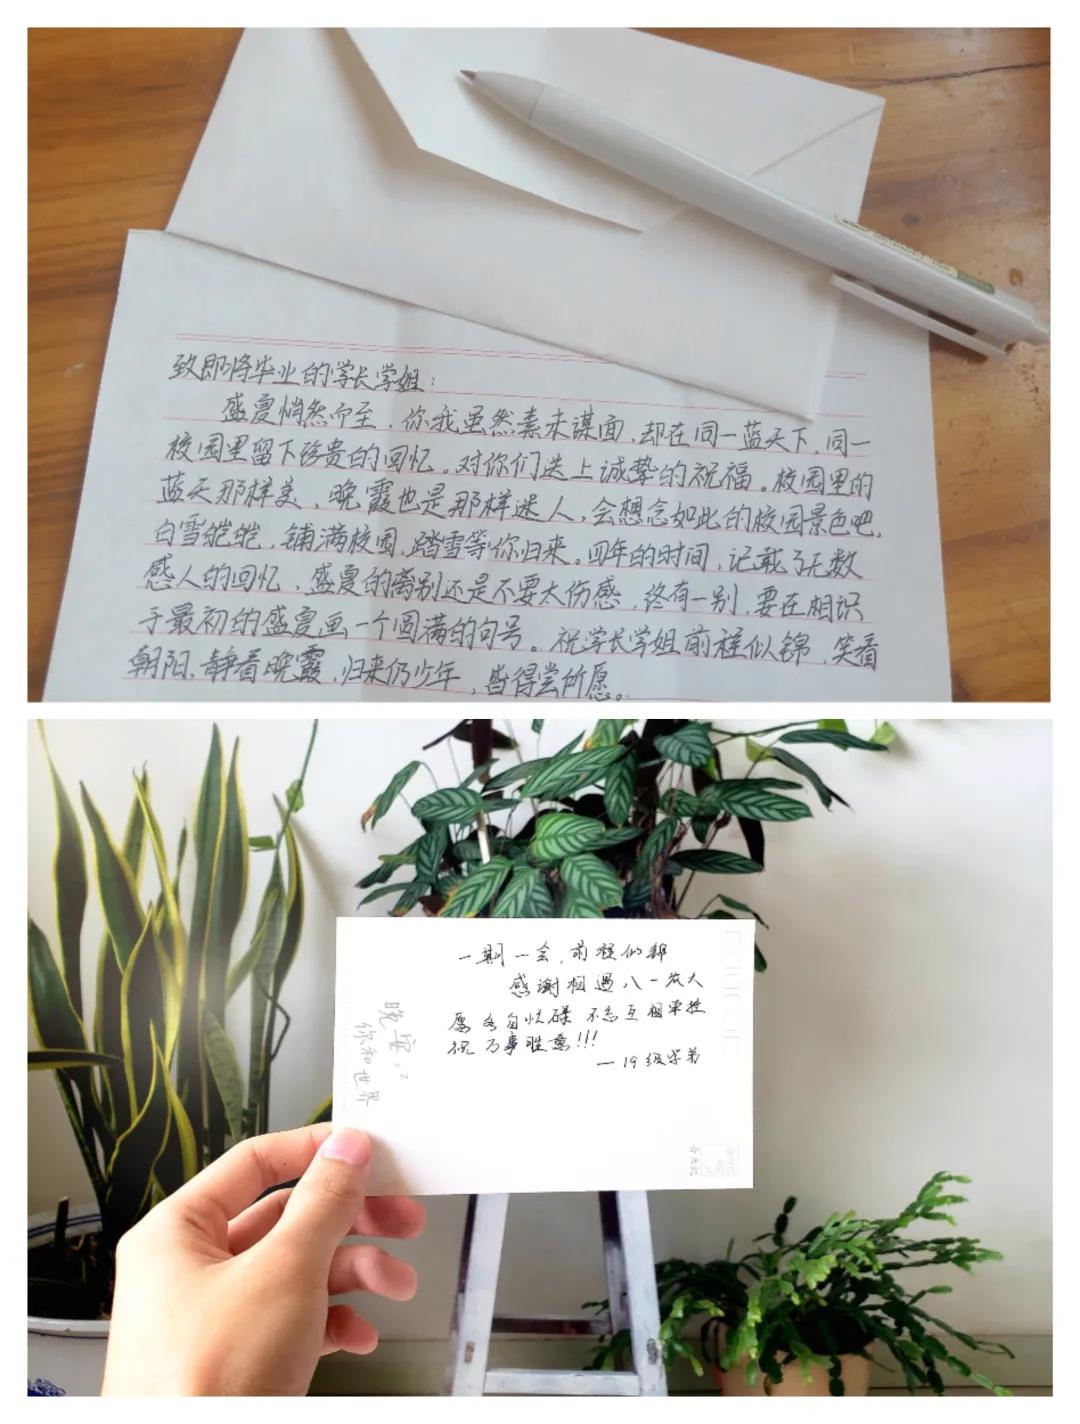 致即将毕业的学长学姐：
盛夏悄然而至，你我虽然素未谋面，却在同一蓝天下，同一
校园里留下珍贵的回忆。对你们送上诚挚的祝福。校园里的
蓝天那样美，晚霞也是那样迷人，会想念如此的校园景色吧。
白雪皑皑，铺满校园，踏雪等你归来。四年的时间，记载了无数
感人的回忆，盛夏的离别还是不要太伤感，终有一别，要在相识
于最初的盛夏画一个圆满的句号。祝学长学姐前程似锦，笑看
朝阳，静看晚霞，归来仍少年，皆得尝所愿。
一期一会，前程似锦
感谢相遇，八一农大
愿各自忙碌 不忘互相牵挂
祝 万事胜意!!!
—19级学弟
晚安,
你和世界